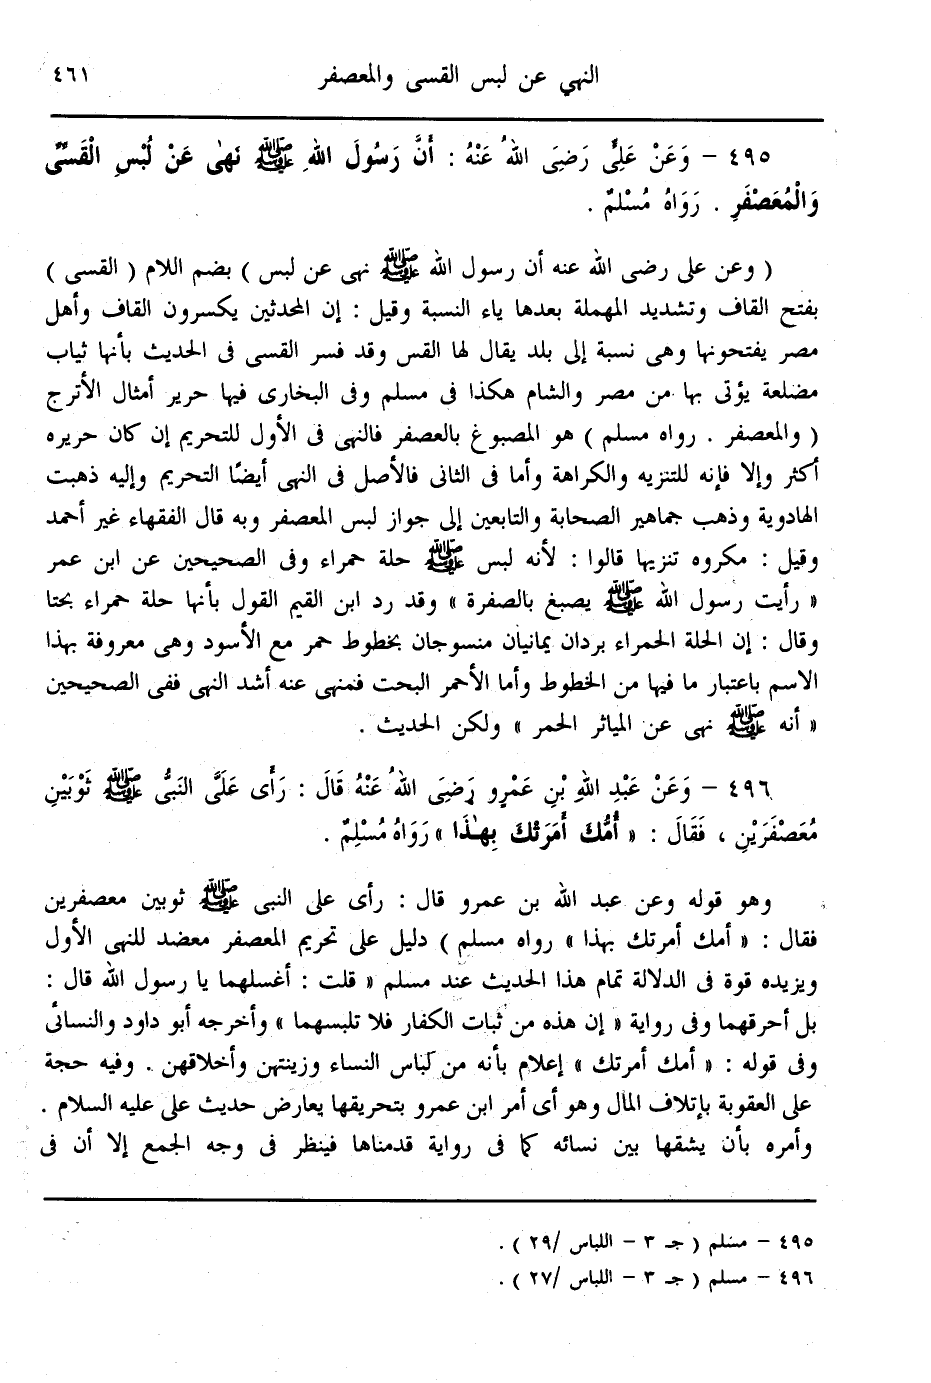 النهي عن لبس القسى والمعصفر ٤٦١
٤٩٥ - وَعَنْ عَلِيٍّ رَضِىَ اللهُ عَنْهُ : أَنَّ رَسُولَ اللهِ ﷺ نَهٰى عَنْ لُبْسِ الْقَسِّىِّ
وَالْمُعَصْفَرِ . رَوَاهُ مُسْلِمٌ .
( وعن على رضى الله عنه أن رسول الله ﷺ نهى عن لبس ) بضم اللام ( القسى )
بفتح القاف وتشديد المهملة بعدها ياء النسبة وقيل : إن المحدثين يكسرون القاف وأهل
مصر يفتحونها وهى نسبة إلى بلد يقال لها القس وقد فسر القسى فى الحديث بأنها ثياب
مضلعة يؤتى بها من مصر والشام هكذا فى مسلم وفى البخارى فيها حرير أمثال الأترج
( والمعصفر . رواه مسلم ) هو المصبوغ بالعصفر فالنهى فى الأول للتحريم إن كان حريره
أكثر وإلا فإنه للتنزيه والكراهة وأما فى الثانى فالأصل فى النهى أيضًا التحريم وإليه ذهبت
الهادوية وذهب جماهير الصحابة والتابعين إلى جواز لبس المعصفر وبه قال الفقهاء غير أحمد
وقيل : مكروه تنزيها قالوا : لأنه لبس ﷺ حلة حمراء وفى الصحيحين عن ابن عمر
« رأيت رسول الله ﷺ يصبغ بالصفرة » وقد رد ابن القيم القول بأنها حلة حمراء بحتا
وقال : إن الحلة الحمراء بردان يمانيان منسوجان بخطوط حمر مع الأسود وهى معروفة بهذا
الاسم باعتبار ما فيها من الخطوط وأما الأحمر البحت فمنهى عنه أشد النهى ففى الصحيحين
« أنه ﷺ نهى عن المياثر الحمر » ولكن الحديث .
٤٩٦ - وَعَنْ عَبْدِ اللهِ بْنِ عَمْرٍو رَضِىَ اللهُ عَنْهُ قَالَ : رَأَى عَلَىَّ النَبىُّ ﷺ ثَوْبَيْنِ
مُعَصْفَرَيْنِ ، فَقَالَ : « أُمُّكَ أَمَرَتْكَ بِهٰذَا » رَوَاهُ مُسْلِمٌ .
وهو قوله وعن عبد الله بن عمرو قال : رأى على النبى ﷺ ثوبين معصفرين
فقال : « أمك أمرتك بهذا » رواه مسلم ) دليل على تحريم المعصفر معضد للنهى الأول
ويزيده قوة فى الدلالة تمام هذا الحديث عند مسلم « قلت : أغسلهما يا رسول الله قال :
بل أحرقهما وفى رواية « إن هذه من ثبات الكفار فلا تلبسهما » وأخرجه أبو داود والنسائى
وفى قوله : « أمك أمرتك » إعلام بأنه من لباس النساء وزينتهن وأخلاقهن . وفيه حجة
على العقوبة بإتلاف المال وهو أى أمر ابن عمرو بتحريقها يعارض حديث على عليه السلام .
وأمره بأن يشقها بين نسائه كما فى رواية قدمناها فينظر فى وجه الجمع إلا أن فى
٤٩٥ - مسلم ( جـ ٣ - اللباس /٢٩ ) .
٤٩٦ - مسلم ( جـ ٣ - اللباس /٢٧ ) .